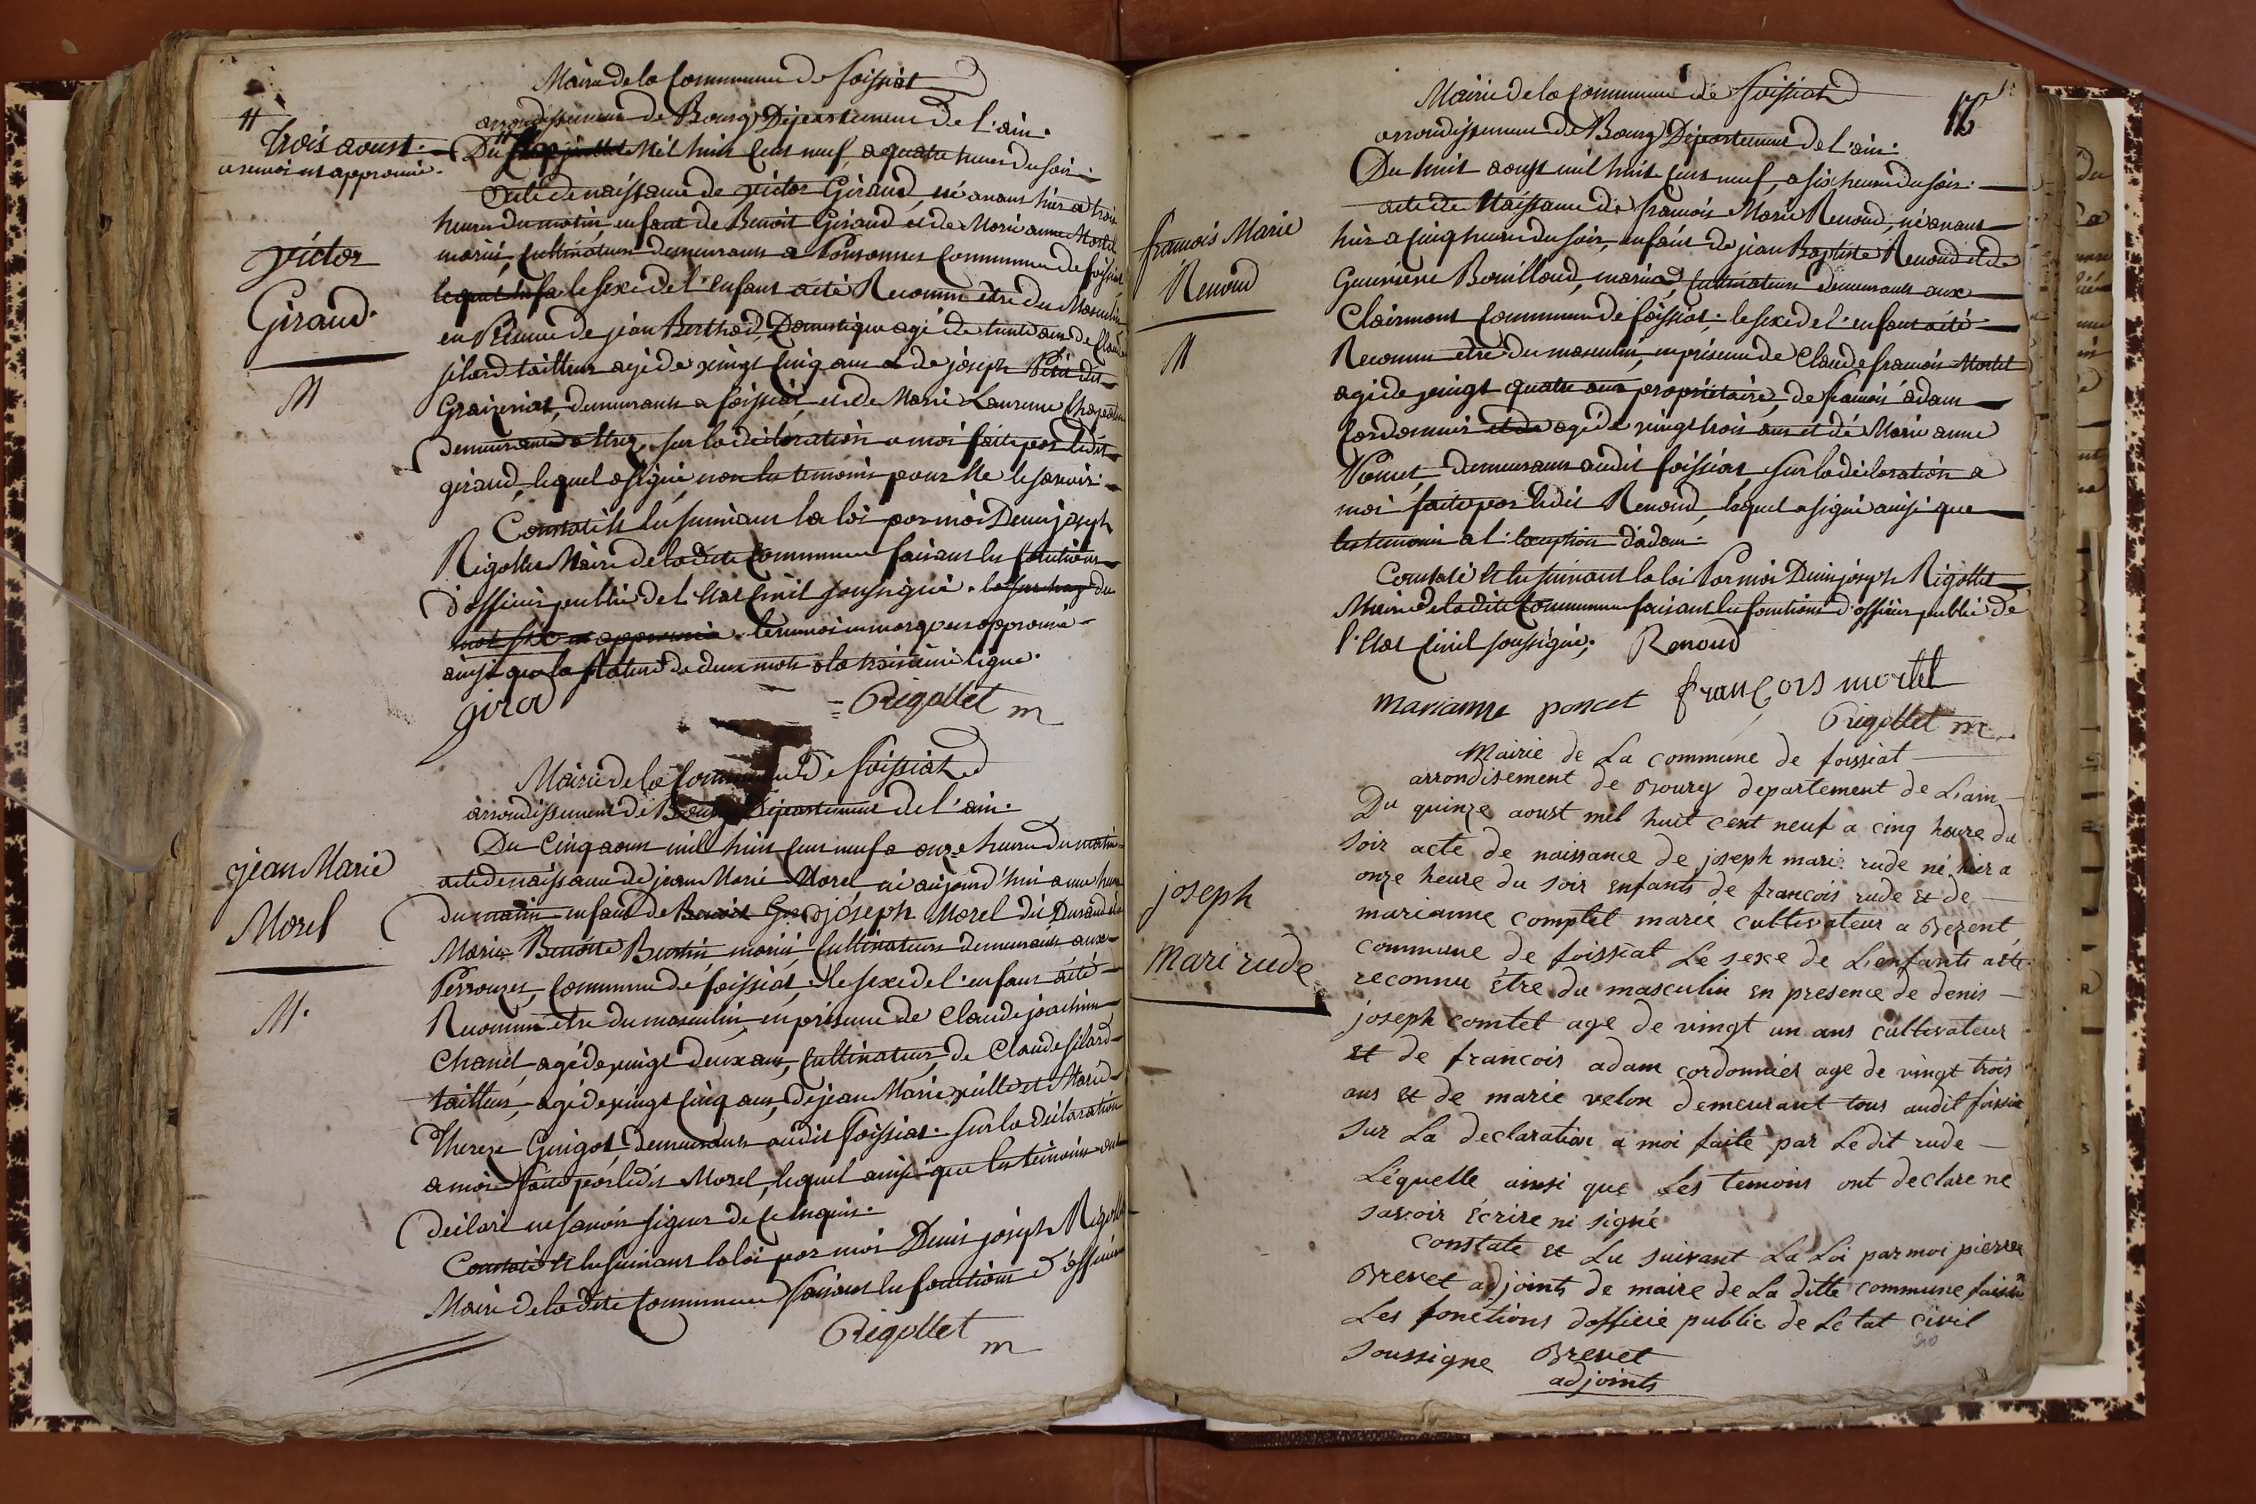 Mairie de la Commune de foissiat
arrondissement de Bourg Département de l'ain.
#
trois aoust.
renvoi est approuvé.
Du Mil huit Cent neuf, a quatre heures du soir.
acte de naissance de victor Giraud, né avant hier a trois
heures du matin enfant de Benoit Giraud et de Marie anne Mortel
mariés, Cultivateurs demeurants a Ponsonnet Commune de foissiat
le sexe de l'enfant a été Reconnu être du Masculin
en Présence de jean Berthod, Domestique agé de trente ans de Claude
silard tailleur agé de vingt Cinq ans et de joseph Petit dit
demeurants a foissiat, et de Marie Laurence
Demeurante a sur la déclaration a moi faite par ledit
giraud, lequel a signé, non les temoins pour Ne le savoir.
Constaté et lu suivant la loi par moi Denis joseph
Rigollet Maire de la dite Commune faisant les fonctions
d'officier public de l'Etat Civil soussigné. la surcharge du
mot six est approuvée. le renvoi en marge est approuvé
ainsi que la Rature de deux mots a la troisième ligne.
victor
Giraud.
M
giro
Rigollet m
Mairie de la Commune de foissiat
arrondissement de Bourg Département de l'ain.
Du Cinq aoust mil huit Cent neuf a onze heures du matin
acte de naissance de jean Marie Morel né aujourd'hui a une heure
du matin enfant de Benoit joseph Morel dit Durand et de
Marie Benoite mariés Cultivateurs demeurants aux
Perrouzes, Commune de foissiat, le sexe de l'enfant a été
Reconnu être du masculin, en présence de Claude joachim
Chanel, agé de vingt deux ans, Cultivateur, de Claude silard
tailleur, agé de vingt Cinq ans, de jean Marie et Marie
Therese Guigot Demeurants audit foissiat. sur la déclaration
a moi faite par ledit Morel, lequel ainsi que les témoins ont
déclaré ne savoir signer de Ce enquis.
Constaté et lu suivant la loi par moi Denis joseph Rigollet
Maire de la dite Commune faisant les fonctions d'officier
jean Marie
Morel
M.
Rigollet
m
16
Mairie de la Commune de foissiat
arrondissement de Bourg Département de l'ain.
Du huit aoust mil huit Cent neuf, a six heures du soir.
acte de Naissance de francois Marie Renoud, né avant
hier a Cinq heures du soir, enfant de jean Baptiste Renoud et de
Genevieve Bouilloud, mariés, Cultivateurs demeurants aux
Clairmont Commune de foissiat. le sexe de l'enfant a été
Reconnu être du masculin, en présence de Claude francois Mortel
agé de vingt quatre ans propriétaire, de francois adam
Cordonnier et de agé de vingt trois ans et de Marie anne
Poncet demeurants audit foissiat, sur la déclaration a
moi faite par ledit Renoud, lequel a signé ainsi que
les temoins a l'exception d'adam.
Constaté et lu suivant la loi Par moi Denis joseph Rigollet
Maire de la dite Commune faisant les fonctions d'officier public de
l'Etat Civil soussigné. Renoud
francois Marie
Renoud
M
marianne poncet françois mortel
Rigollet m
mairie de La commune de foissiat
arrondisement de Bourg departement de L'ain
Du quinze aoust mil huit cent neuf a cinq heure du
soir acte de naissance de joseph marie rude né hier a
onze heure du soir enfants de francois rude et de
marianne comptet marié cultivateur a Bezent
commune de foissiat Le sexe de L'enfants a été
reconnu être du masculin en presence de denis
joseph comtet age de vingt un ans cultivateur
et de francois adam cordonnier age de vingt trois
ans et de marie velon demeurant tous audit foissia
sur La declaration a moi faite par Le dit rude
Léquelle ainsi que Les temoins ont declare ne
savoir ecrire ni signé
constate et Lu suivant La Loi par moi pierre
Brevet adjoints de maire de La ditte commune faisan
Les fonctions d'officie public de Létat civil
soussigne Brevet
adjoints
joseph
mari rude